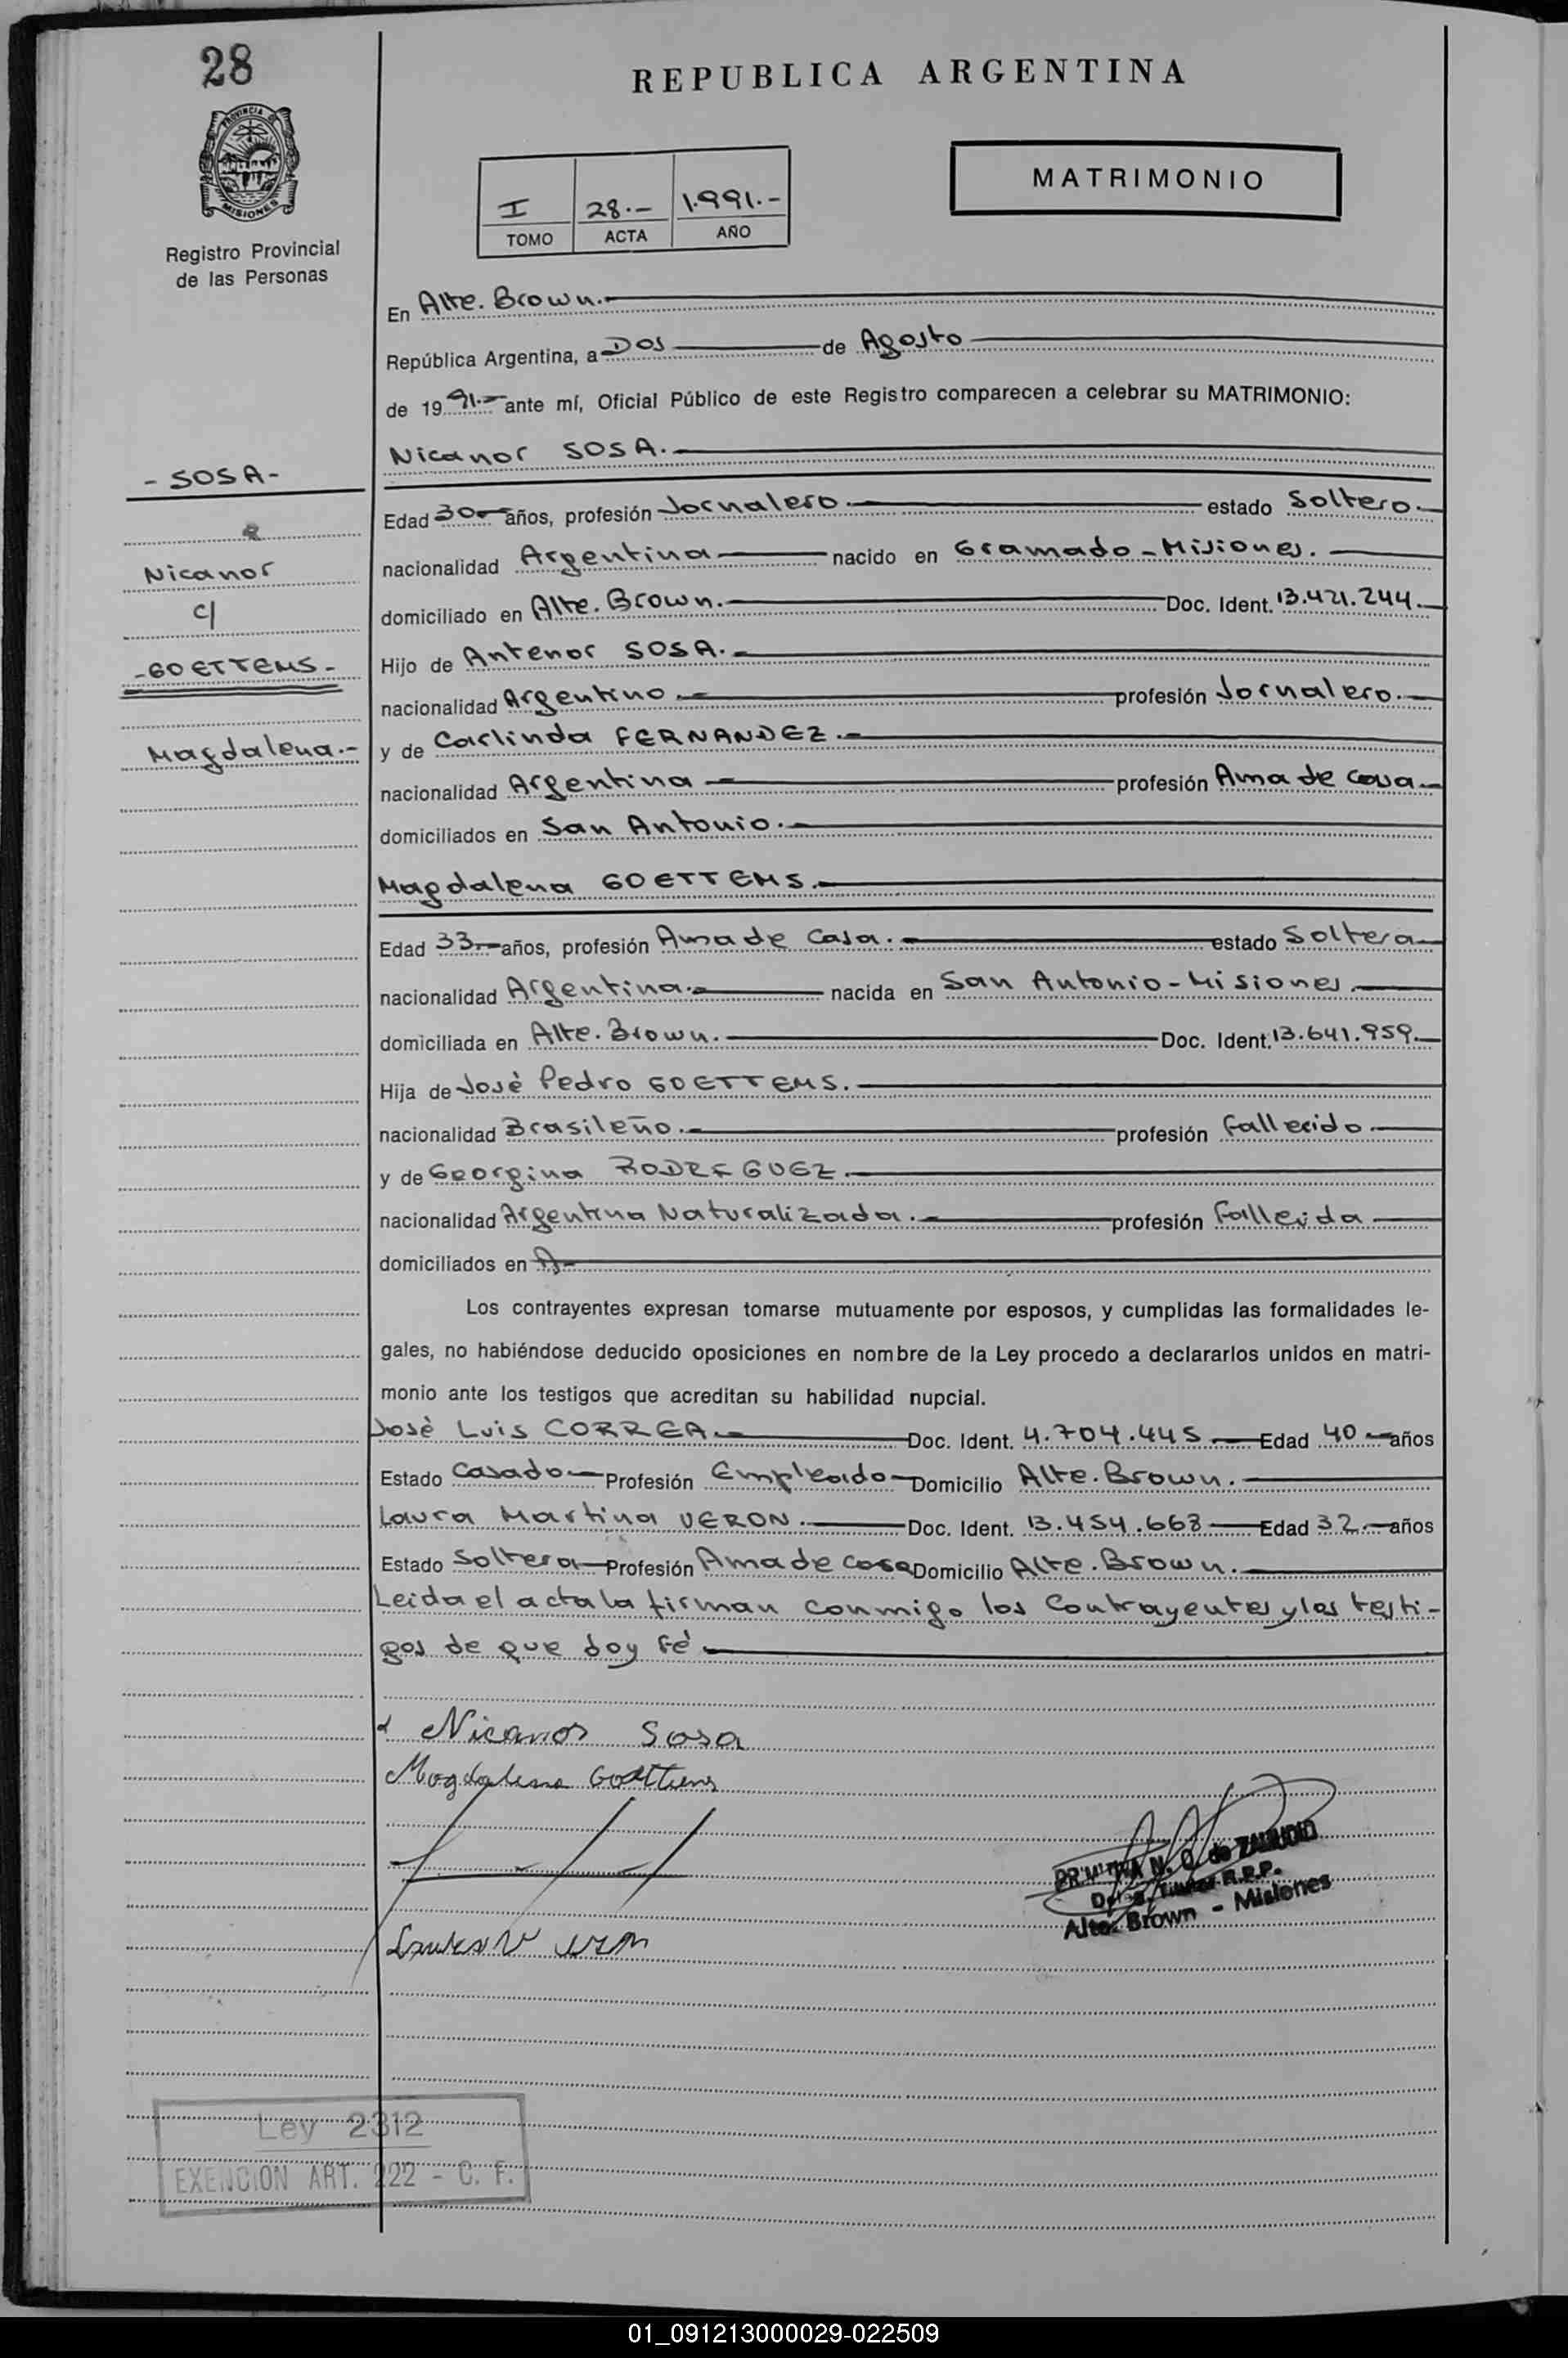 28
REPUBLICA ARGENTINA
PROVINCIA DE
MISIONES
Registro Provincial
de las Personas
I 28.- 1.991.-
TOMO ACTA AÑO
MATRIMONIO
En Alte. Brown.-
República Argentina, a Dos de Agosto
de 1991.- ante mí, Oficial Público de este Registro comparecen a celebrar su MATRIMONIO:
Nicanor SOSA.-
- SOSA-
Nicanor
c/
-GOETTEMS-
Magdalena.-
Edad 30.- años, profesión Jornalero estado Soltero.-
nacionalidad Argentina nacido en Gramado - Misiones.
domiciliado en Alte. Brown. Doc. Ident. 13.421.244.-
Hijo de Antenor SOSA.-
nacionalidad Argentino.- profesión Jornalero.-
y de Carlinda FERNANDEZ.-
nacionalidad Argentina - profesión Ama de casa-
domiciliados en San Antonio.-
Magdalena GOETTEMS.-
Edad 33.- años, profesión Ama de Casa.- estado Soltera-
nacionalidad Argentina.- nacida en San Antonio - Misiones-
domiciliada en Alte. Brown.- Doc. Ident. 13.641.959.-
Hija de José Pedro GOETTEMS.-
nacionalidad Brasileño.- profesión Fallecido-
y de Georgina RODRIGUEZ.-
nacionalidad Argentina Naturalizada.- profesión Fallecida-
domiciliados en
Los contrayentes expresan tomarse mutuamente por esposos, y cumplidas las formalidades le-
gales, no habiéndose deducido oposiciones en nombre de la Ley procedo a declararlos unidos en matri-
monio ante los testigos que acreditan su habilidad nupcial.
José Luis CORREA.- Doc. Ident. 4.704.445.- Edad 40.- años
Estado Casado- Profesión Empleado- Domicilio Alte. Brown.-
Laura Martina VERON.- Doc. Ident. 13.454.663- Edad 32.- años
Estado Soltera- Profesión Ama de casa Domicilio Alte. Brown.-
Leida el acta la firman conmigo los Contrayentes y los testi-
gos de que doy fé.-
Nicanor Sosa
Magdalena Goettems
PRIMITIVA N. O. de ZAMUDIO
Deleg. Titular R.P.P.
Alte. Brown - Misiones
Ley 2312
EXENCION ART. 222 - C. F.
01_091213000029-022509